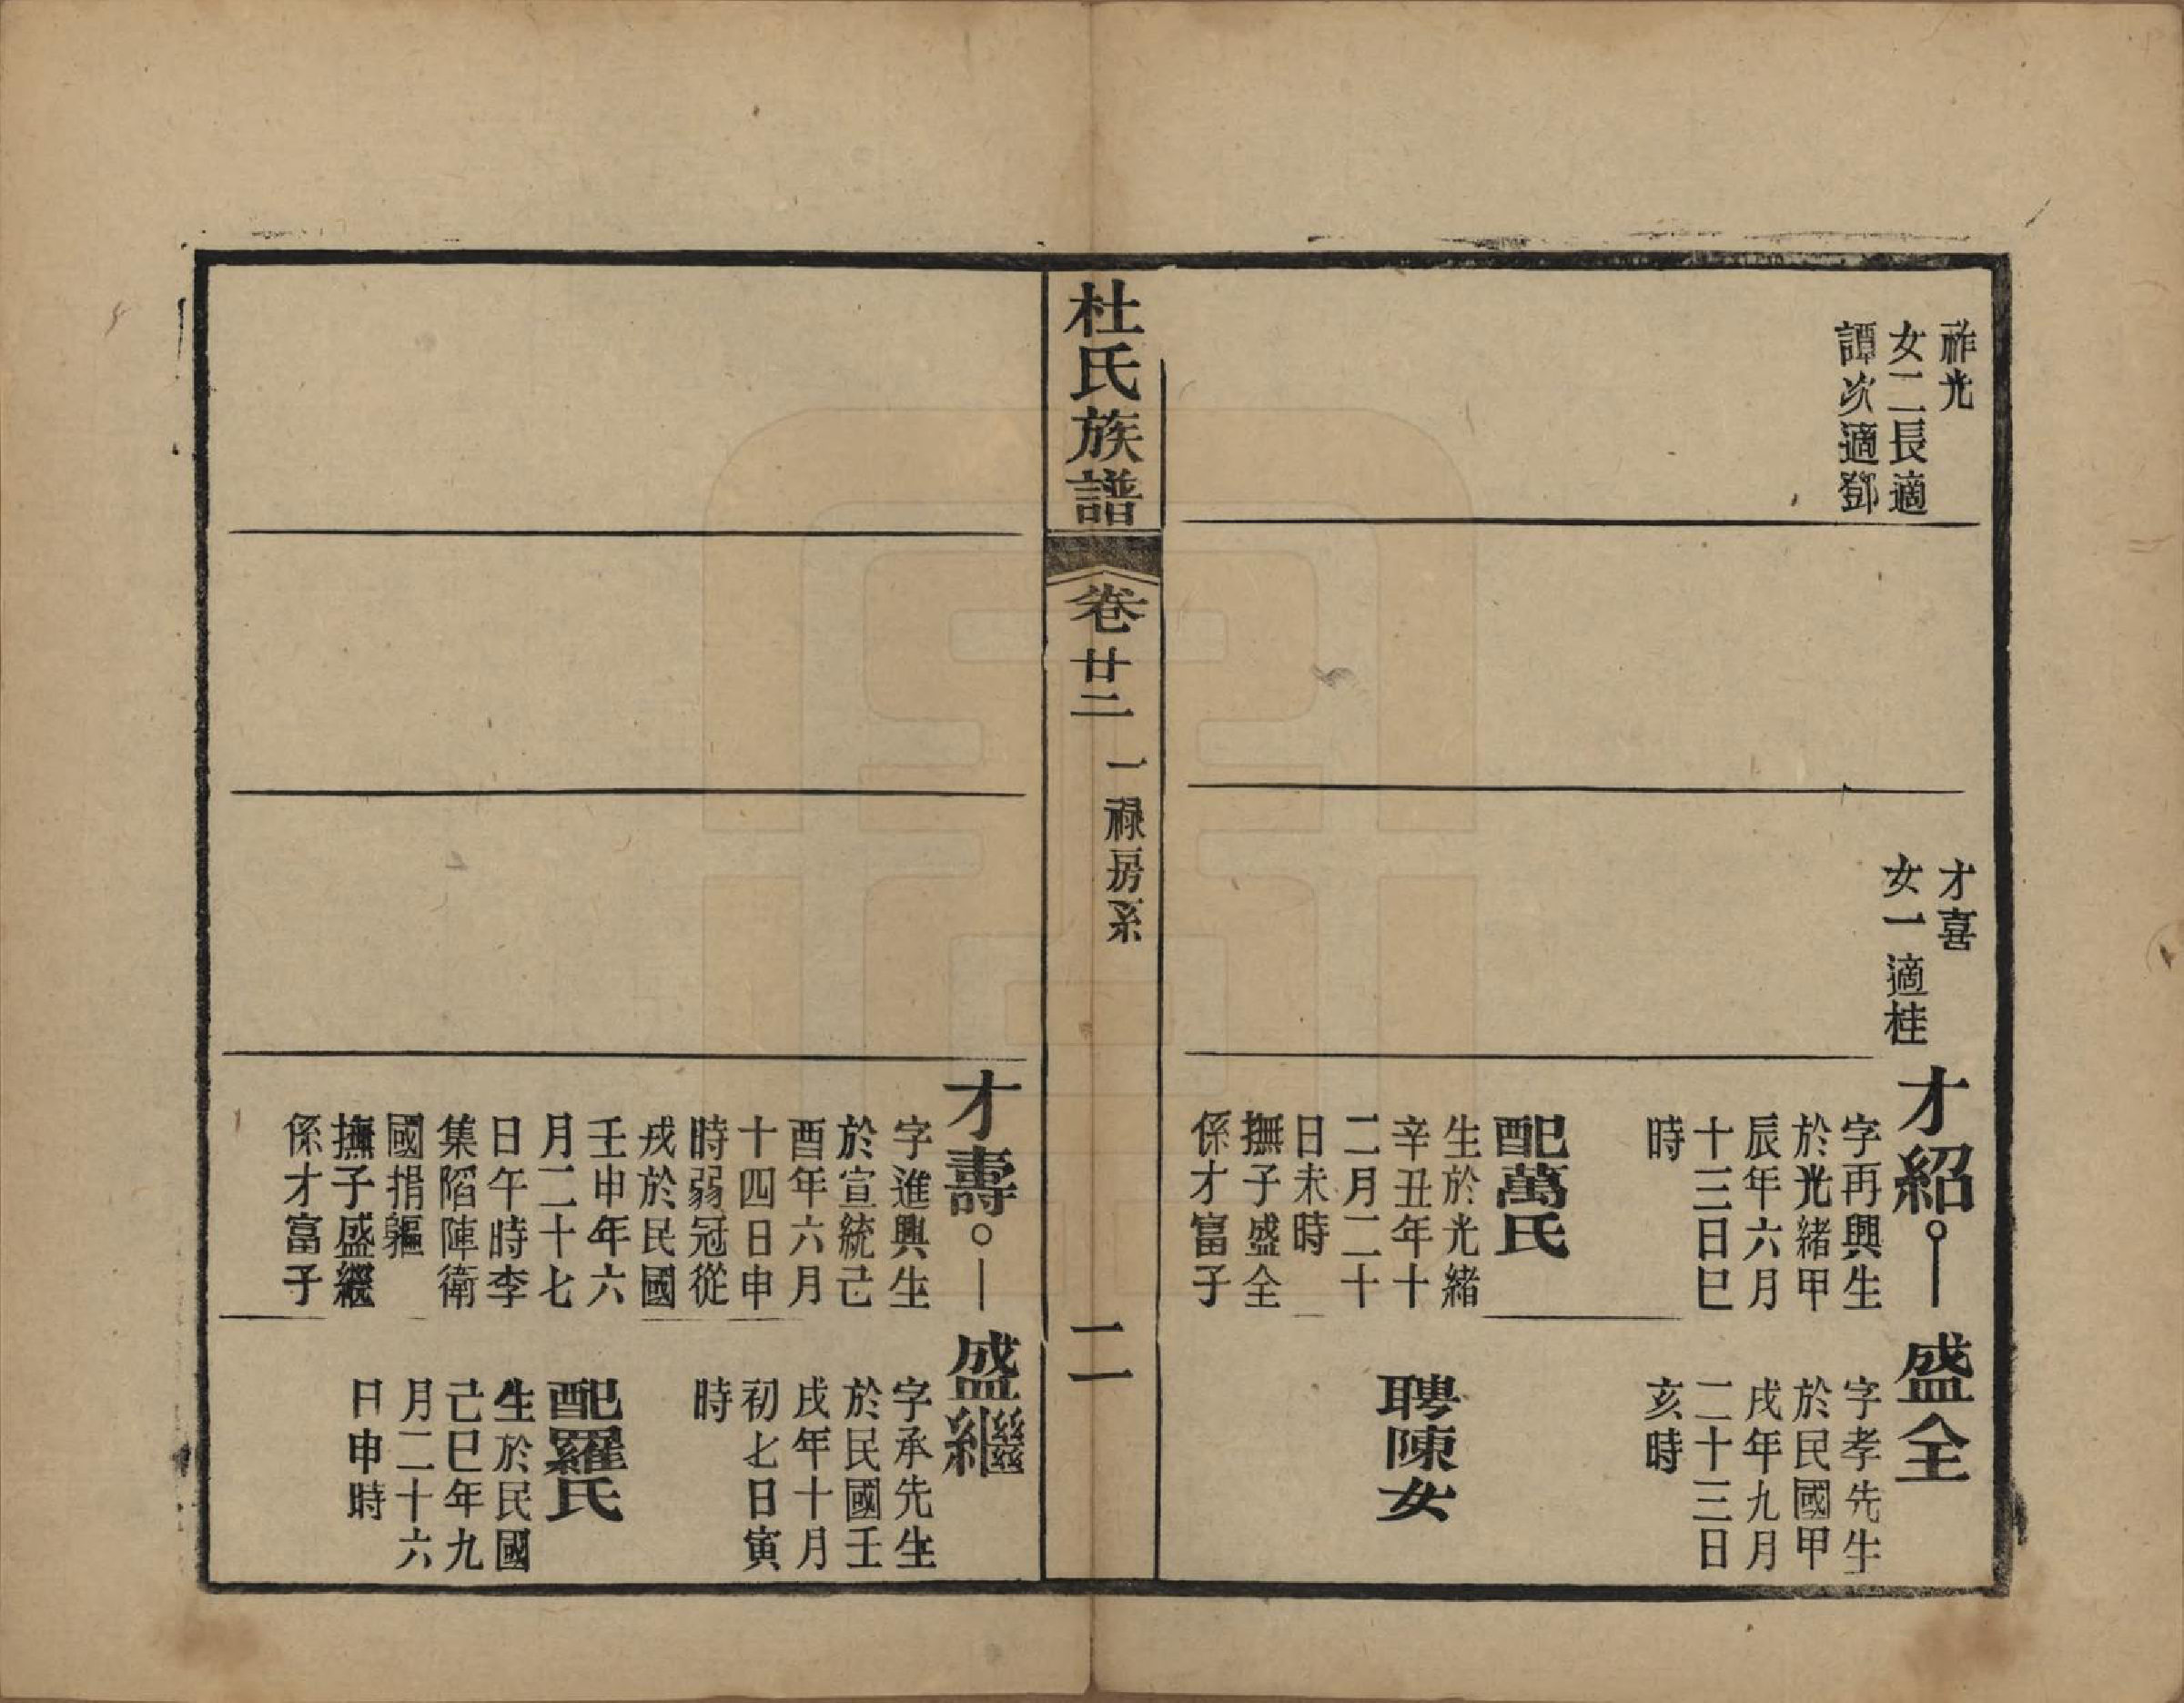 祚光
女二長適
譚次適鄧
才喜
女一適桂
才紹
字再興生
於光緒甲
辰年六月
十三日巳
時
配萬氏
生於光緒
辛丑年十
二月二十
日未時
撫子盛全
係才富子
盛全
字孝先生
於民國甲
戌年九月
二十三日
亥時
聘陳女
杜氏族譜
卷廿二
一祿房系
二
才壽
字進興生
於宣統己
酉年六月
十四日申
時弱冠從
戎於民國
壬申年六
月二十七
日午時李
集陷陣衛
國捐軀
撫子盛繼
係才富子
盛繼
字承先生
於民國壬
戌年十月
初七日寅
時
配羅氏
生於民國
己巳年九
月二十六
日申時